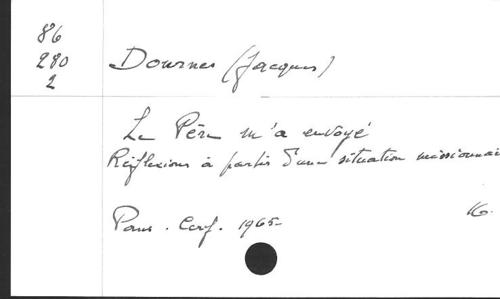 86
280
2
Dournes (Jacques)
Le Père m'a envoyé
Réflexions à partir d'une situation missionnai
Paris. Cerf. 1965
16.